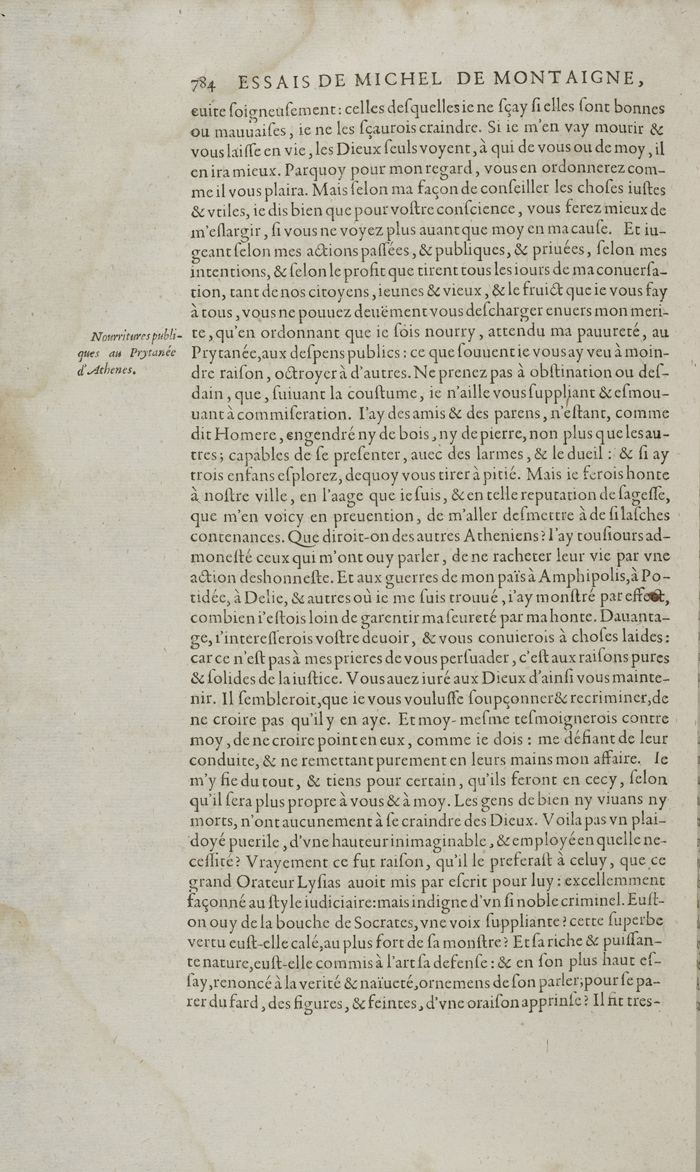 784 ESSAIS DE MICHEL DE MONTAIGNE,
euite ſoigneuſement : celles deſquelles ie ne ſçay ſi elles ſont bonnes
ou mauuaiſes, ie ne les ſçaurois craindre. Si ie m'en vay mourir &
vous laiſſe en vie, les Dieux ſeuls voyent, à qui de vous ou de moy, il
en ira mieux. Parquoy pour mon regard, vous en ordonnerez com-
me il vous plaira. Mais ſelon ma façon de conſeiller les choſes iuſtes
& vtiles, ie dis bien que pour voſtre conſcience, vous ferez mieux de
m'eſlargir, ſi vous ne voyez plus auant que moy en ma cauſe. Et iu-
geant ſelon mes actions paſſées, & publiques, & priuées, ſelon mes
intentions, & ſelon le profit que tirent tous les iours de ma conuerſa-
tion, tant de nos citoyens, ieunes & vieux, & le fruict que ie vous fay
à tous, vous ne pouuez deuëment vous deſcharger enuers mon meri-
Nourritures publi-
ques au Prytanée
d'Athenes.
te, qu'en ordonnant que ie ſois nourry, attendu ma pauureté, au
Prytanée, aux deſpens publics : ce que ſouuent ie vous ay veu à moin-
dre raiſon, octroyer à d'autres. Ne prenez pas à obſtination ou deſ-
dain, que, ſuiuant la couſtume, ie n'aille vous ſuppliant & eſmou-
uant à commiſeration. I'ay des amis & des parens, n'eſtant, comme
dit Homere, engendré ny de bois, ny de pierre, non plus que les au-
tres ; capables de ſe preſenter, auec des larmes, & le dueil : & ſi ay
trois enfans eſplorez, dequoy vous tirer à pitié. Mais ie ferois honte
à noſtre ville, en l'aage que ie ſuis, & en telle reputation de ſageſſe,
que m'en voicy en preuention, de m'aller deſmettre à de ſi laſches
contenances. Que diroit-on des autres Atheniens ? I'ay touſiours ad-
moneſté ceux qui m'ont ouy parler, de ne racheter leur vie par vne
action deshonneſte. Et aux guerres de mon païs à Amphipolis, à Po-
tidée, à Delie, & autres où ie me ſuis trouué, i'ay monſtré par effect,
combien i'eſtois loin de garentir ma ſeureté par ma honte. Dauanta-
ge, i'intereſſerois voſtre deuoir, & vous conuierois à choſes laides :
car ce n'eſt pas à mes prieres de vous perſuader, c'eſt aux raiſons pures
& ſolides de la iuſtice. Vous auez iuré aux Dieux d'ainſi vous mainte-
nir. Il ſembleroit, que ie vous vouluſſe ſoupçonner & recriminer, de
ne croire pas qu'il y en aye. Et moy-meſme teſmoignerois contre
moy, de ne croire point en eux, comme ie dois : me défiant de leur
conduite, & ne remettant purement en leurs mains mon affaire. Ie
m'y fie du tout, & tiens pour certain, qu'ils feront en cecy, ſelon
qu'il ſera plus propre à vous & à moy. Les gens de bien ny viuans ny
morts, n'ont aucunement à ſe craindre des Dieux. Voila pas vn plai-
doyé puerile, d'vne hauteur inimaginable, & employé en quelle ne-
ceſſité ? Vrayement ce fut raiſon, qu'il le preferaſt à celuy, que ce
grand Orateur Lyſias auoit mis par eſcrit pour luy : excellemment
façonné au ſtyle iudiciaire : mais indigne d'vn ſi noble criminel. Euſt-
on ouy de la bouche de Socrates, vne voix ſuppliante ? cette ſuperbe
vertu euſt-elle calé, au plus fort de ſa monſtre ? Et ſa riche & puiſſan-
te nature, euſt-elle commis à l'art ſa defenſe : & en ſon plus haut eſ-
ſay, renoncé à la verité & naïueté, ornemens de ſon parler, pour ſe pa-
rer du fard, des figures, & feintes, d'vne oraiſon apprinſe ? Il fit tres-